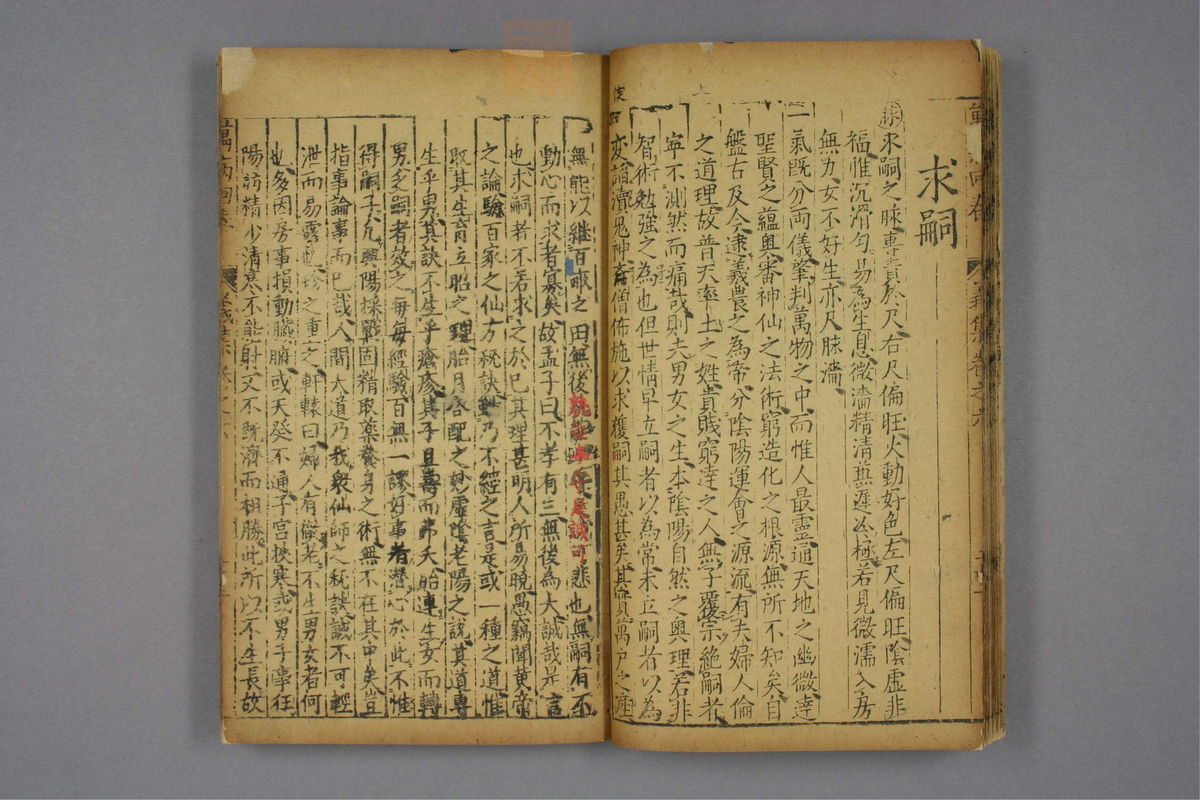 求嗣
脉求嗣之脉專責於尺右尺偏旺火動好色左尺偏旺陰虛非
福惟沉滑勻易為生息微濇精清兼遲冷極若見微濡入房
無力女不好生亦尺脉濇
一氣既分兩儀肇判萬物之中而惟人最靈通天地之幽微達
聖賢之蘊奧審神仙之法術窮造化之根源無所不知矣自
盤古及今逮義農之為帝分陰陽運會之源流有夫婦人倫
之道理故普天率土之姓貴賤窮達之人無子覆宗絕嗣者
寧不測然而痛哉則夫男女之生本陰陽自然之輿理若非
智術勉強之為也但世情早立嗣者以為常未立嗣者以為
變謟瀆鬼神齋僧佈施以求獲嗣其愚甚矣其貫萬戶之産
無能以繼百畝之田無後就世上守是誠可悲也無嗣有不
動心而求者寡矣故孟子曰不孝有三無後為大誠哉是言
也求嗣者不若求之於己其理甚明人所易曉愚竊聞黃帝
之論驗百家之仙方秘訣 乃不經之言是或一種之道惟
取其生育立昭之理胎月合配之妙虛陰老陽之說其道專
生乎男其訣不生乎 其子且壽而弗夭胎連生女而轉
男多嗣者效之每每經驗百無一謬好事者潛心於此不惟
得嗣子凡興陽採戰固精取藥養身之術無不在其中矣豈
指事論事而已哉人間大道乃我衆仙師之秘訣誠不可輕
泄而易露 珍之重之軒轅曰婦人有 不生男女者何
也多因房事損動臟腑或天癸不通子宮挾寒或男子學狂
陽訪精少清寒不能射文不既濟而相勝此所以不生長故